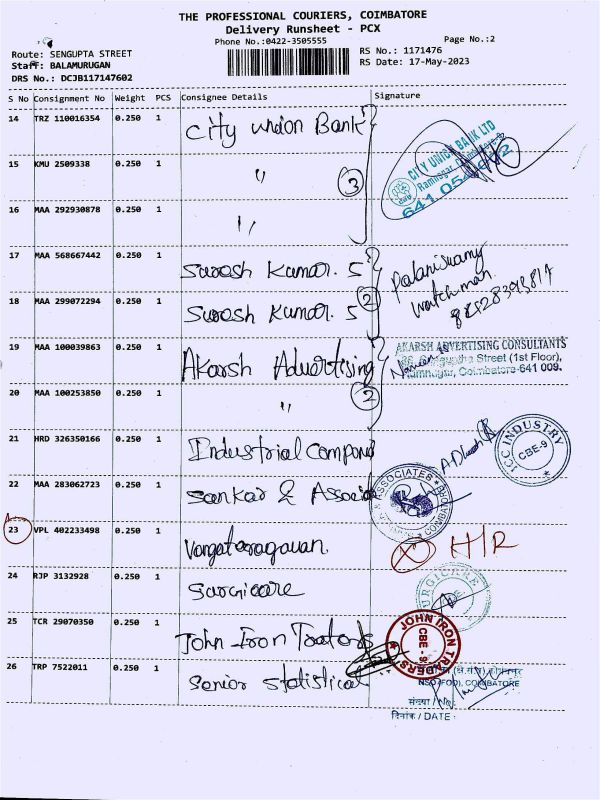 THE PROFESSIONAL COURIERS, COIMBATORE
Delivery Runsheet - PCX
Phone No.:0422-3505555
Page No.:2
Route: SENGUPTA STREET
RS No.: 1171476
Staff: BALAMURUGAN
RS Date: 17-May-2023
DRS No.: DCJB117147602
S No Consignment No Weight PCS Consignee Details Signature
14 TRZ 110016354 0.250 1 City Union Bank
CITY UNION BANK LTD
Ramnagar, Coimbatore
15 KMU 2509338 0.250 1 "
3
16 MAA 292930878 0.250 1 "
17 MAA 568667442 0.250 1 Suresh Kumar. S
Palaniswamy
watchman
18 MAA 299072294 0.250 1 Suresh Kumar. S
2
19 MAA 100039863 0.250 1 Akarsh Advertising
AKARSH ADVERTISING CONSULTANTS
Street (1st Floor),
Ramnagar, Coimbatore-641 009.
20 MAA 100253850 0.250 1 "
2
21 HRD 326350166 0.250 1 Industrial Compon
ICC INDUSTRY
CBE-9
22 MAA 283062723 0.250 1 Sankar & Associa
ASSOCIATES
23 VPL 402233498 0.250 1
X H/R
24 RJP 3132928 0.250 1 Surgicare
SURGICARE
25 TCR 29070350 0.250 1 John Iron Traders
JOHN IRON TRADERS
CBE - 9
26 TRP 7522011 0.250 1 Senior Statistical
NSO (FOD), COIMBATORE
संख्या / No.
दिनांक / DATE :